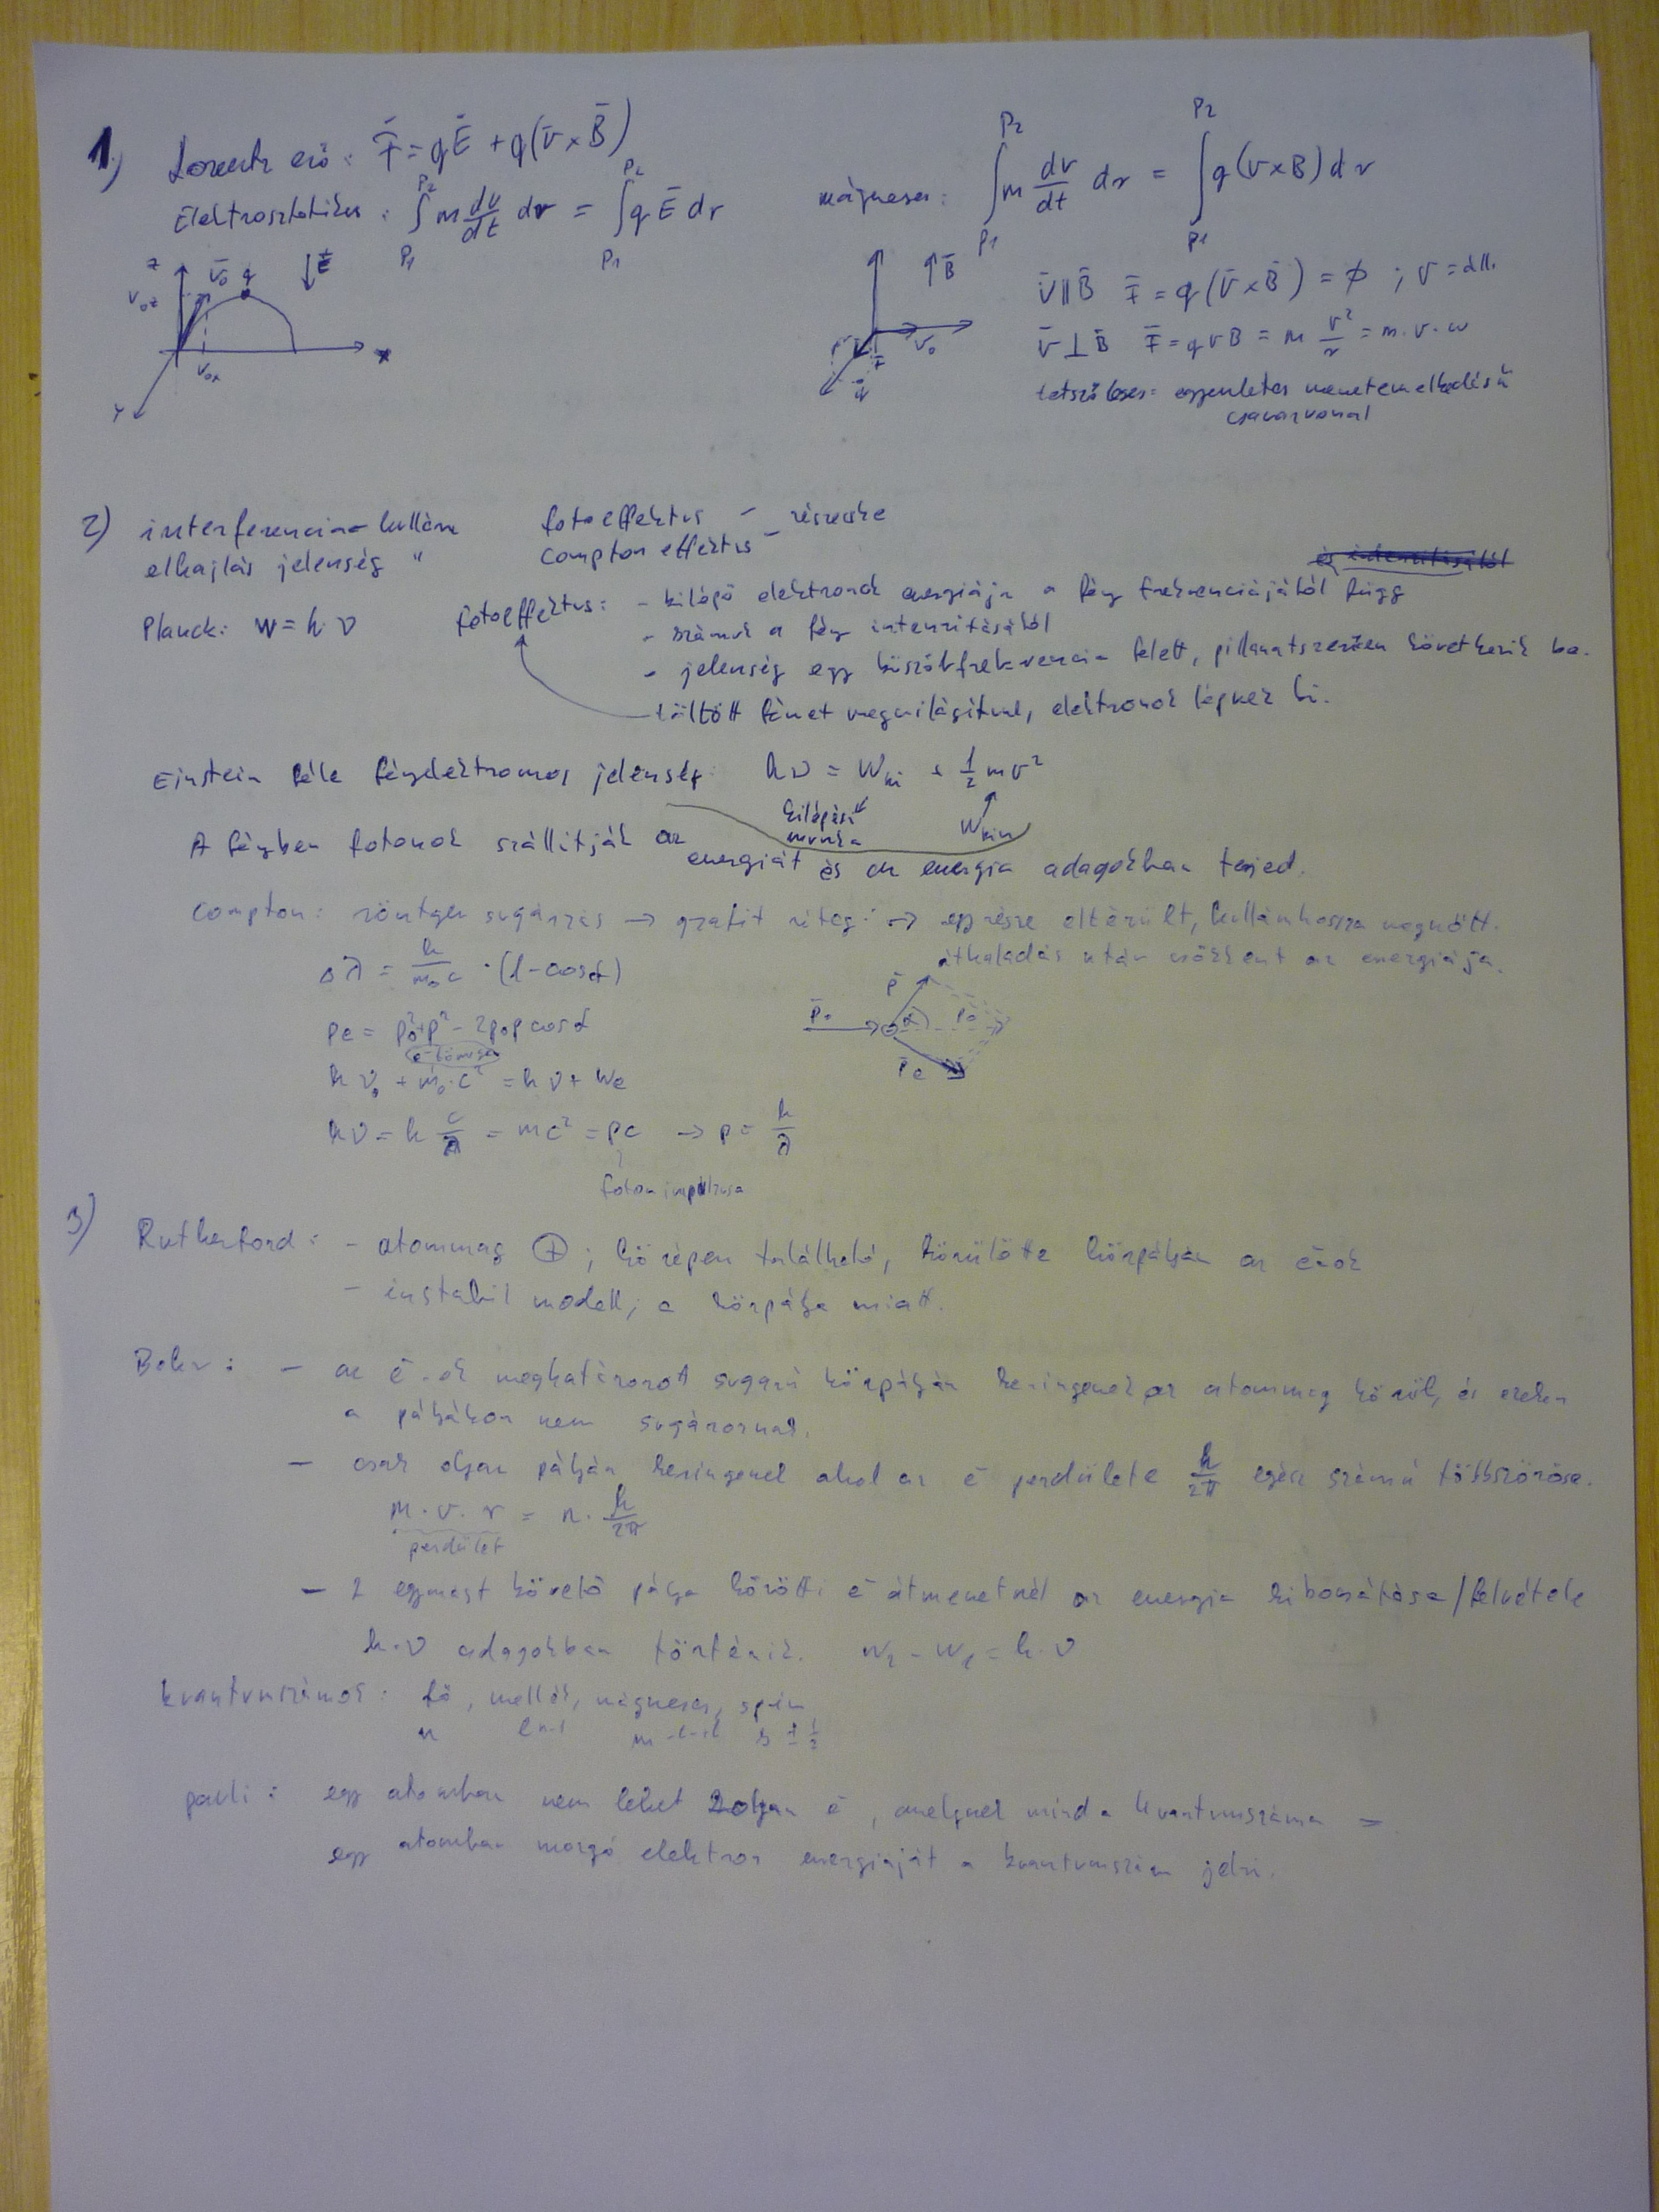 1.) Lorentz erő: F̄ = qĒ + q(v̄ × B̄)
Elektrosztatikus: ∫ m dv/dt dr = ∫ q Ē dr
P1 P2 P1 P2
mágneses: ∫ m dv/dt dr = ∫ q(v×B) dr
P1 P2 P1 P2
z v̄0 q Ē
v0z
v0x x
y
B̄
v0
F
v̄ ∥ B̄ F̄ = q(v̄ × B̄) = ϕ ; v = áll.
v̄ ⊥ B̄ F̄ = qvB = m v²/r = m·v·ω
tetszőleges = egyenletes menetemelkedésű
csavarvonal
2) interferencia - hullám
elhajlás jelenség "
fotoeffektus - részecske
Compton effektus -
Planck: W = h·ν
és intenzitásától
fotoeffektus: - kilépő elektronok energiája a fény frekvenciájától függ
- számuk a fény intenzitásától
- jelenség egy küszöbfrekvencia felett, pillanatszerűen következik be.
töltött fémet megvilágítva, elektronok lépnek ki.
Einstein féle fényelektromos jelenség: hν = Wki + ½ mv²
kilépési munka
Wkin
A fényben fotonok szállítják az energiát és az energia adagokban terjed.
Compton: röntgen sugárzás → grafit réteg → egy része eltérült, hullámhossza megnőtt.
áthaladás után csökkent az energiája.
Δλ = h/m0c · (1-cosα)
pe = p0² + p² - 2p0p cosα
e- tömege
hν0 + m0·c² = hν + We
hν = h c/λ = mc² = pc → p = h/λ
foton impulzusa
p̄
p̄0 α p̄0
p̄e
3) Rutherford: - atommag ⊕; középen található, körülötte körpályán az e-ok
- instabil modell, a körpálya miatt.
Bohr: - az e-ok meghatározott sugarú körpályán keringenek az atommag körül, és ezeken
a pályákon nem sugároznak.
- csak olyan pályán keringenek ahol az e- perdülete h/2π egész számú többszöröse.
m·v·r = n·h/2π
perdület
- 2 egymást követő pálya közötti e- átmenetnél az energia kibocsátása/felvétele
h·ν adagokban történik. W2 - W1 = h·ν
kvantumszámok: fő, mellék, mágneses, spin
n l n-1 m -l-l s ± ½
pauli: egy atomban nem lehet 2 olyan e-, amelynek mind a kvantumszáma =
egy atomban mozgó elektron energiáját a kvantumszám jelzi.